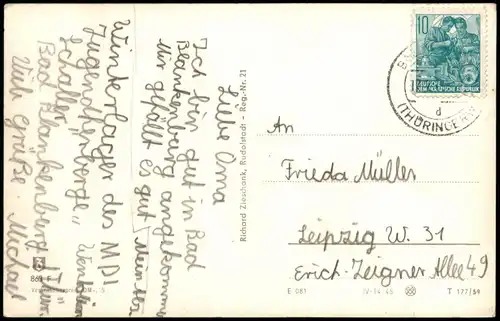 Liebe Oma
Ich bin gut in Bad
Blankenburg angekommen
Mir gefällt es gut
Winterlager des MPI
Jugendherberge
Schaller
Bad Blankenburg
Viele Grüße. Michael
Richard Zieschank, Rudolstadt - Reg.-Nr. 21
10
DEUTSCHE
DEMOKRATISCHE REPUBLIK
(THÜRINGERW
d
An
Frieda Müller
Leipzig W. 31
Erich-Zeigner Allee 49
E 081
T 177/59